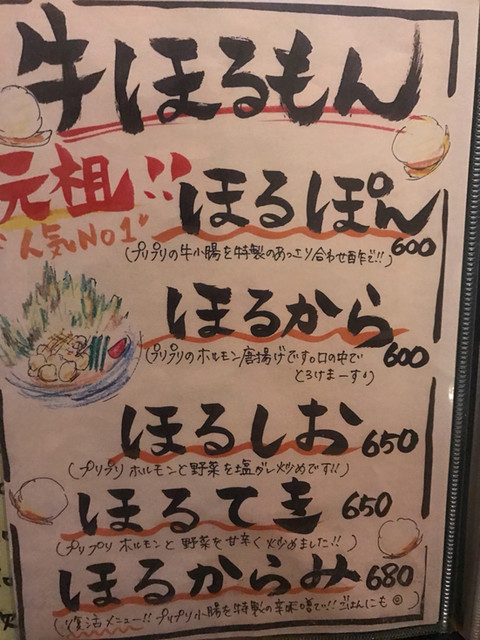 牛ほるもん
元祖!!
"人気NO1"
ほるぽん 600
(プリプリの牛小腸を特製のあっさり合わせ酢で!!)
ほるから 600
(プリプリのホルモン唐揚げです。口の中で
とろけまーす♪)
ほるしお 650
(プリプリ ホルモンと野菜を塩ダレ炒めです!!)
ほるてき 650
(プリプリ ホルモンと 野菜を甘辛く炒めました!!)
ほるからみ 680
(復活メニュー!! プリプリ小腸を特製の辛味噌で!! ごはんにも◎)